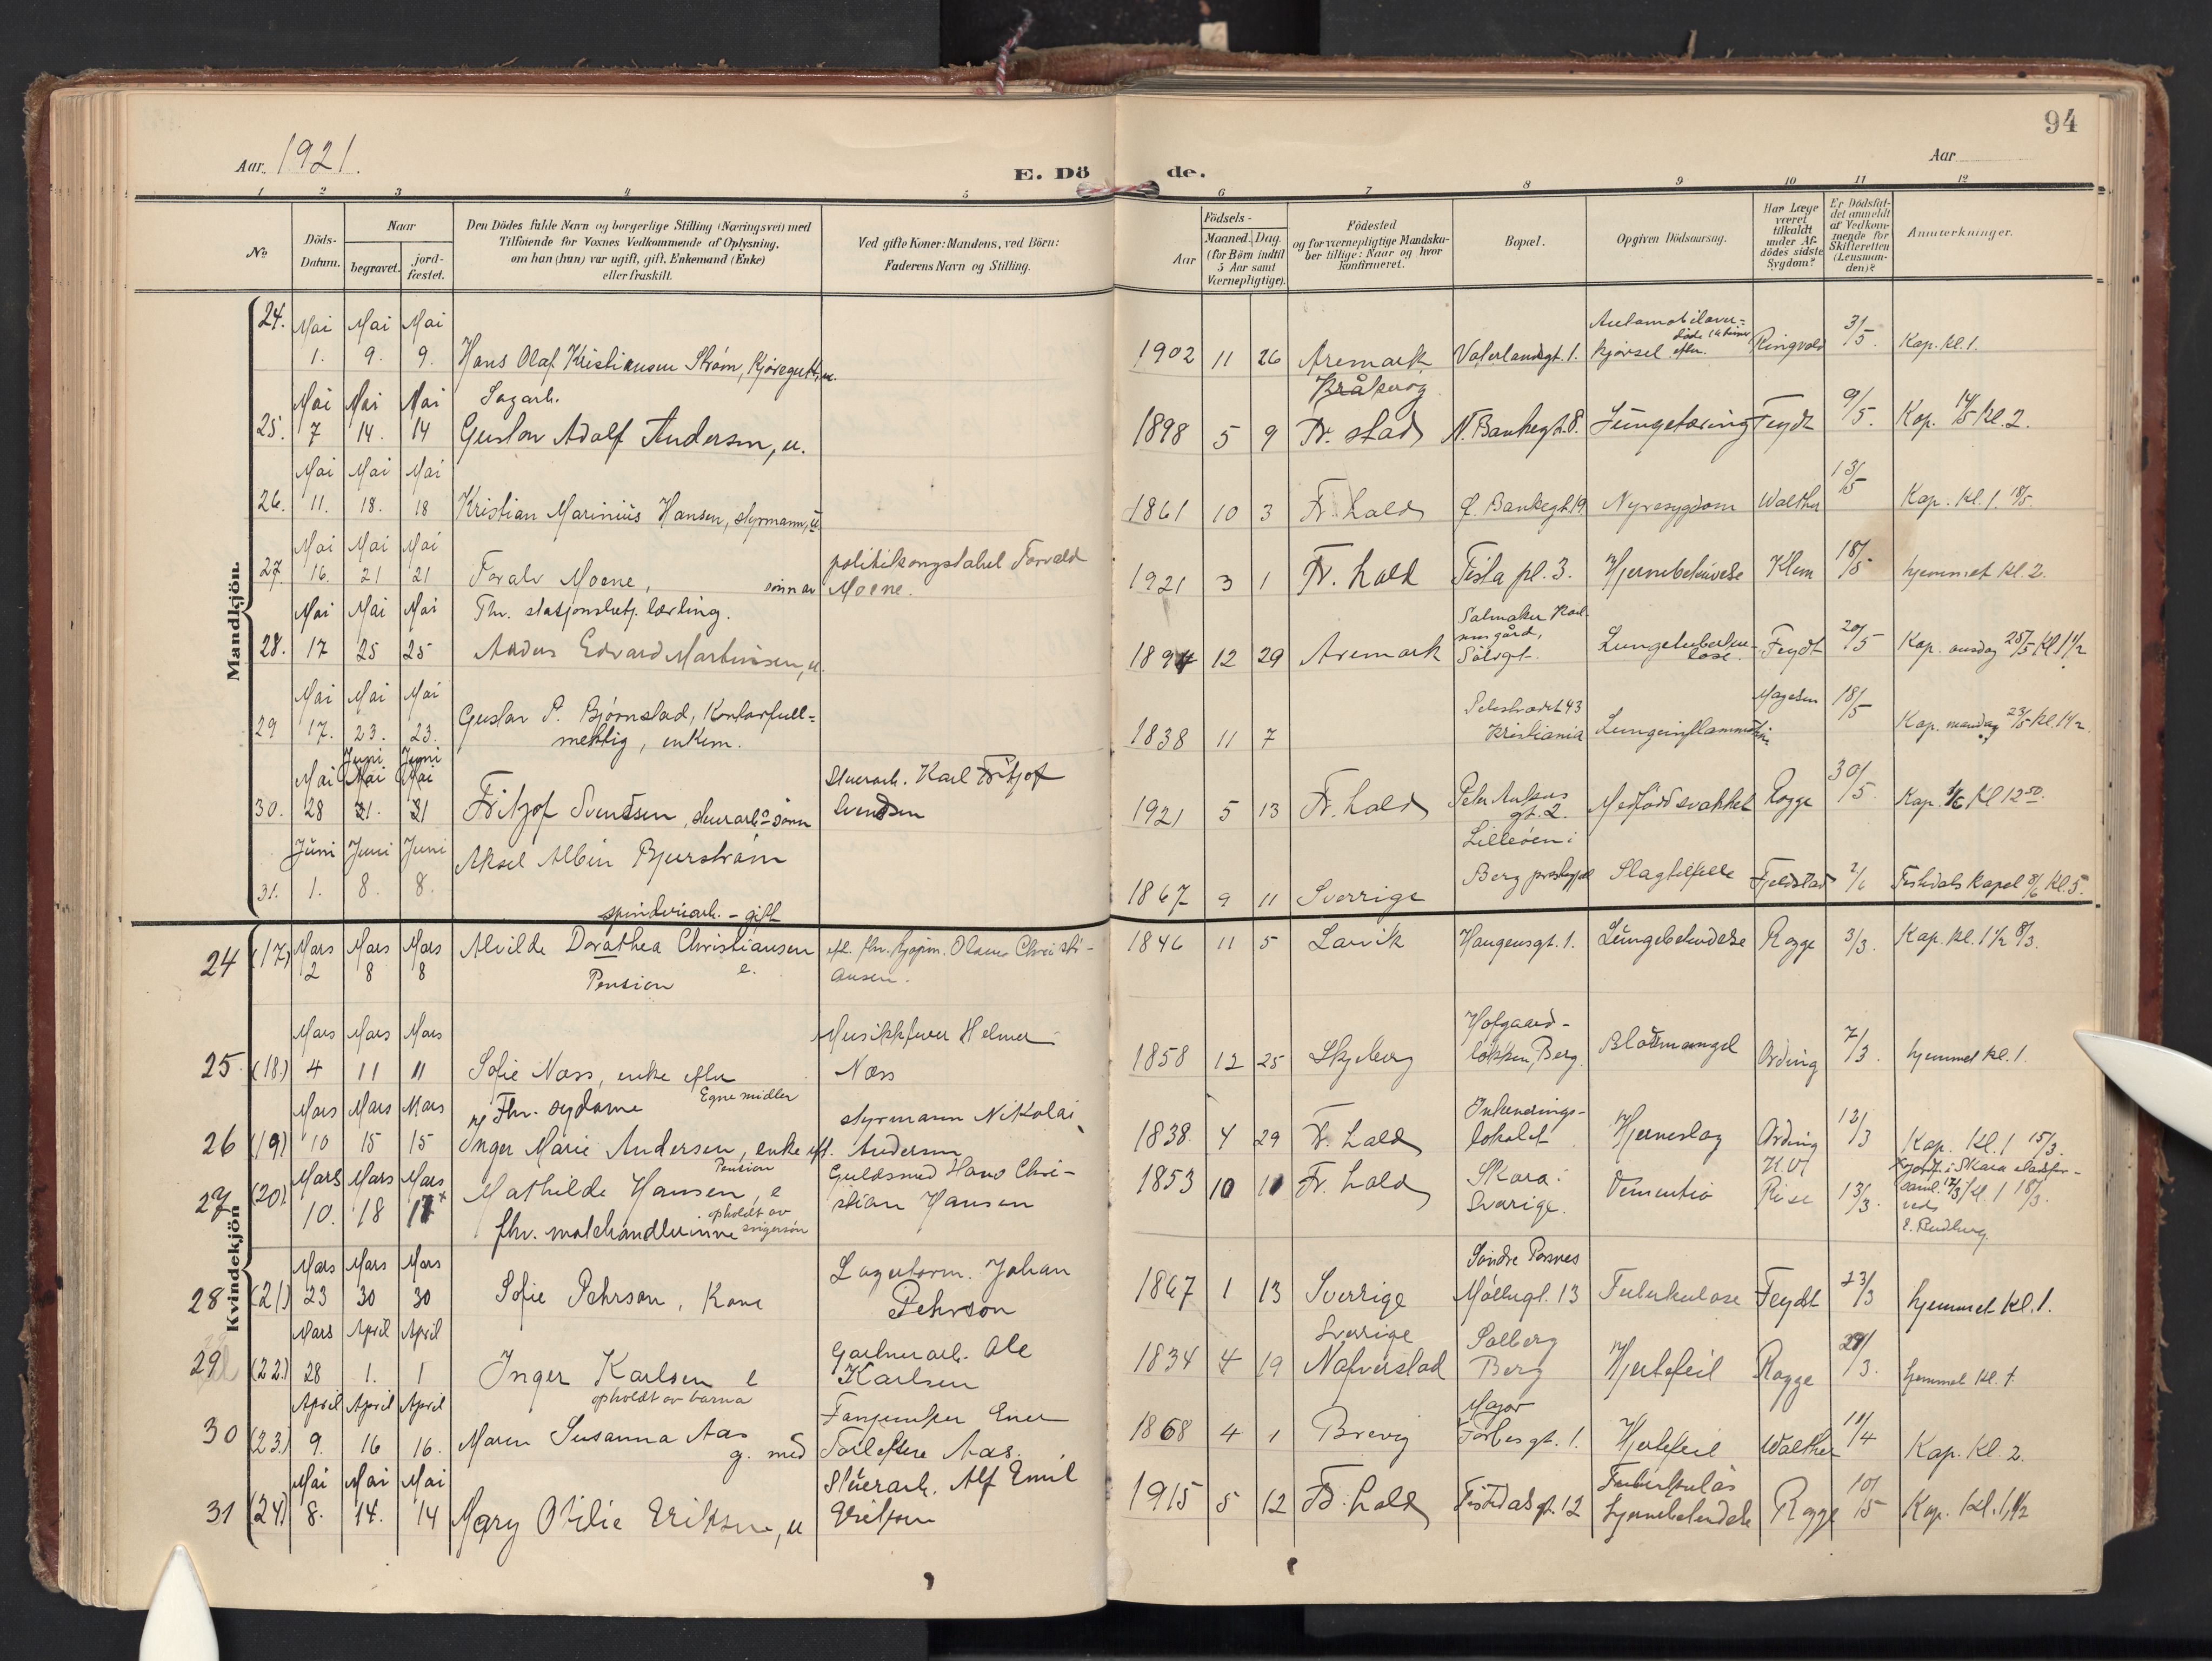 94
Aar 1921.
E. Dö de.
Aar
1 2 3 4 5 6 7 8 9 10 11 12
No
Döds-
Datum.
Naar
begravet.
jord-
fæstet.
Den Dödes fulde Navn og borgerlige Stilling (Næringsvei) med
Tilföiende for Voxnes Vedkommende af Oplysning,
om han (hun) var ugift, gift, Enkemand (Enke)
eller fraskilt.
Ved gifte Koner: Mandens, ved Börn:
Faderens Navn og Stilling.
Födsels-
Aar
Maaned. Dag.
(for Börn indtil
5 Aar samt
Værnepligtige).
Födested
og for værnepligtige Mandska-
ber tillige: Naar og hvor
konfirmeret.
Bopæl.
Opgiven Dödsaarsag.
Har Læge
været
tilkaldt
under Af-
dödes sidste
Sygdom?
Er Dödsfal-
det anmeldt
af Vedkom-
mende for
Skifteretten
(Lensman-
den)?
Anmerkninger.
Mandkjön.
24. Mai Mai Mai
1. 9. 9. Hans Olaf Kristiansen Strøm, Kjøregutt, u.
1902 11 26 Aremark Vaterlandsgt. 1. Automobilover-
kjørsel Ringvold 3/5. Kap. kl. 1.
Mai Mai Mai Sagarb. Kråkerøy
25. 7 14. 14 Gustav Adolf Andersen, u.
1898 5 9 Fr. stad N. Bankegt. 8. Lungetæring Feydt 9/5. Kap. 14/5 kl. 2.
Mai Mai Mai
26. 11. 18. 18 Kristian Marinius Hansen, styrmann, u
1861 10 3 Fr. hald Ø. Bankegt. 19 Nyresygdom Walther 13/5 Kap. kl. 1. 18/5.
Mai Mai Mai
27. 16. 21 21 Toralv Moene, sønn av politikonstabel Torvald
Moene.
1921 3 1 Fr. hald Tista pl. 3. Hjernebetennelse Klem 18/5 hjemmet kl. 2.
Mai Mai Mai Fhv. stasjonsbetj. lærling.
28. 17 25 25 Anders Edvard Martinsen, u.
1894 12 29 Aremark Salmaker Karl-
sens gård,
Sølvgt. Lungetuberku-
lose. Feydt 20/5 Kap. onsdag 25/5 Kl 1 1/2
Mai Mai Mai
29 17. 23. 23. Gustav P. Bjørnstad, Kontorfull-
mektig, enkem.
1838 11 7 Pilestrædet 43
Kristiania Lungeinflammasjon Magelsen 18/5 Kap. mandag 23/5 kl. 1 1/2.
Juni Juni
Mai Mai Mai
30. 28 21. 21 Fritjof Svendsen, stuerarb. sønn Stuerarb. Karl Fritjof
Svendsen
1921 5 13 Fr. hald Peder Ankers
gt. 2. Medfødd svakhet Rogge 30/5. Kap. 1/6 Kl 12 50.
Juni Juni Juni
31. 1. 8. 8. Aksel Albin Bjurstrøm
spinneriarb. - gift
1867 9 11 Sverrige Lilleøen i
Berg prestegjeld Slagtilfelle Fjeldstad 2/6 Tistedals Kapel 8/6 kl. 5.
Kvindekjön
24 (17) Mars Mars Mars
2 8 8 Alvilde Dorathea Christiansen
e.
Pension
ef. fhv. skippm. Olaus Christi-
ansen.
1846 11 5 Larvik Haugensgt. 1. Lungebetendelse Rogge 3/3. Kap. kl. 1 1/2 8/3.
Mars Mars Mars
25. (18.) 4 11 11 Sofie Næss, enke efter
Egne midler
Musikkfører Helmer
Næss
1858 12 25 Skjeberg Hofgaard-
løkken, Berg. Blodmangel Ording 7/3. hjemmet kl. 1.
Mars Mars Mars Fhv. sydame
26 (19) 10 15 15 Inger Marie Andersen, enke eft.
Pension
styrmann Nikolai
Andersen
1838. 4 29 Fr. hald Inkvarterings-
lokalet Hjerneslag Ording 12/3 Kap. kl. 1 15/3.
27 (20) Mars Mars Mars
10. 18 17 x Mathilde Hansen, e
opholdt av
svigersøn
fhv. mothandlerinne
Guldsmed Hans Chri-
stian Hansen
1853 10 11 Fr. hald Skara i
Sverige. Dementia K. V.
Rise 13/3. x Jordf. i Skara stadsfor-
saml. 17/3 kl. 1 18/3.
ved
E. Rudberg.
Mars Mars Mars
28 (21) 23 30 30 Sofie Pehrson, Kone Lagerform. Johan
Pehrson
1867 1 13 Sverrige Søndre Bornes
Møllergt. 13 Tuberkulose Feydt 23/3 hjemmet kl. 1.
Mars April April
29 (22.) 28 1. 1 Inger Karlsen e
opholdt av barna
Gartnerarb. Ole
Karlsen
1834 4 19 Sverrige
Nafverstad Solberg
Berg Hjertefeil Rogge 29/3. hjemmet kl. 1
April April April
30 (23.) 9. 16 16. Maren Susanna Aas
g. med Fanejunker Ener
Torleksen Aas.
1868 4 1 Brevig Major
Forbesgt. 1. Hjertefeil Walther 11/4 Kap. Kl. 2.
Mai Mai Mai
31 (24) 8. 14. 14 Mary Otilie Eriksen, u Stuerarb. Alf Emil
Eriksen
1915 5 12 Fr. hald Tistedalsgt. 12 Tuberkuløs
hjernebetendelse Rogge 10/5 Kap. kl. 1 1/2